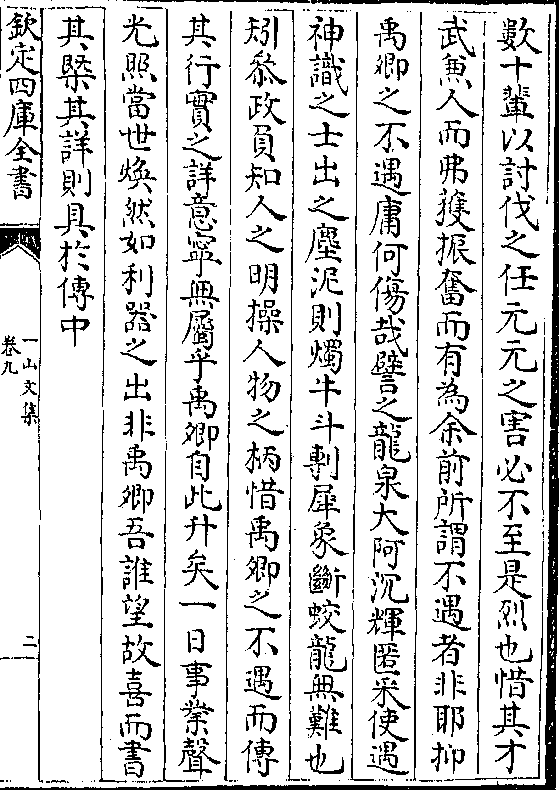 數十輩以討伐之任元元之害必不至是烈也惜其才
武兼人而弗獲振奮而有為余前所謂不遇者非耶抑
禹卿之不遇庸何傷哉譬之龍泉大阿沉輝匿采使遇
神識之士出之塵泥則燭牛斗剸犀象斷蛟龍無難也
矧叅政員知人之明操人物之柄惜禹卿之不遇而傳
其行實之詳意寧無屬乎禹卿自此升矣一日事業聲
光照當世煥然如利器之出非禹卿吾誰望故喜而書
其槩其詳則具於傳中
欽定四庫全書
一山文集
卷九
二